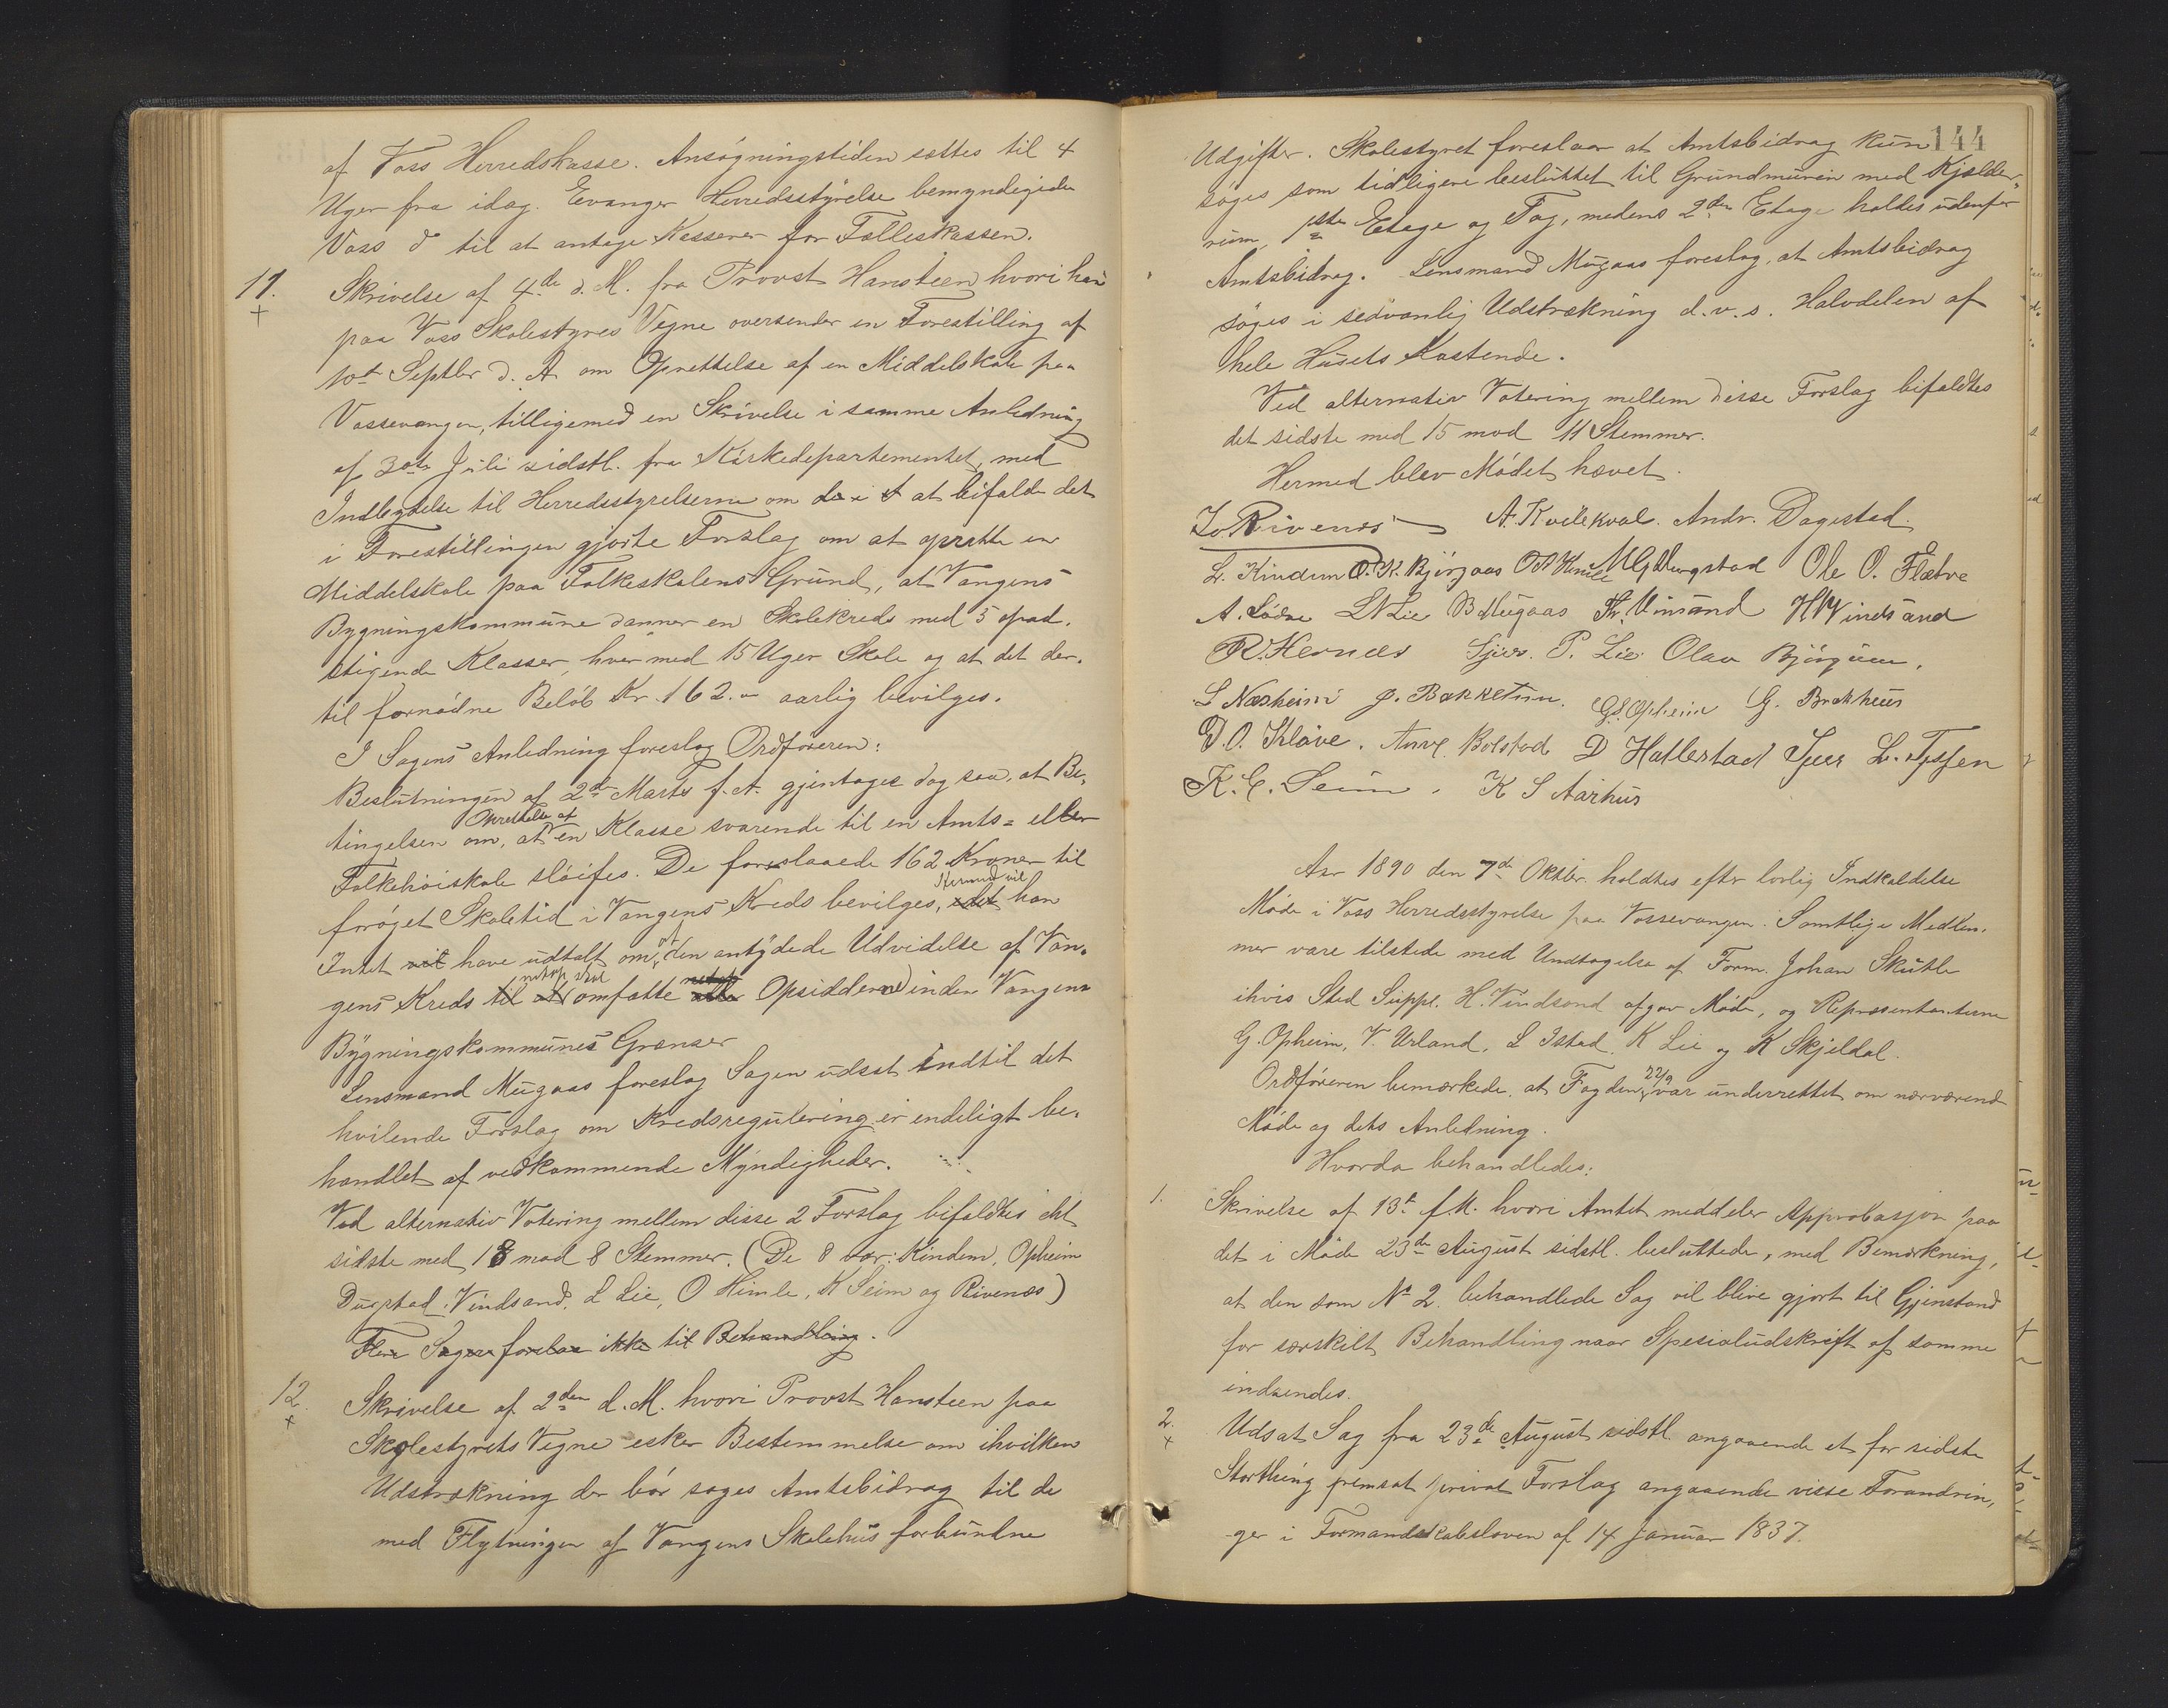 af Voss Herredskasse. Ansøgningstiden sættes til 4
Uger fra idag. Evanger Herredsstyrelse bemyndigede
Voss d° til at antage Kasserer for Fælleskassen.
11. Skrivelse af 4de d. M. fra Provst Hansteen hvori han
+
paa Voss Skolestyres Vegne oversender en Forestilling af
10de Septbr d. A. om Oprettelse af en Middelskole paa
Vossevangen, tilligemed en Skrivelse i samme Anledning
af 30te Juli sidstl. fra Kirkedepartementet, med
Indbydelse til Herredsstyrelserne om at bifalde det
i Forestillingen gjorte Forslag om at oprette en
Middelskole paa Folkeskolens Grund, at Vangens
Bygningskommune danner en Skolekreds med 5 opad-
stigende Klasser, hver med 15 Uger Skole og at det der-
til fornødne Beløb Kr. 162.- aarlig bevilges.
I Sagens Anledning foreslog Ordføreren:
Beslutningen af 2den Marts f. A. gjentages dog saa, at Be-
Oprettelse af
tingelsen om, at en Klasse svarende til en Amts- eller
Folkehøiskole sløifes. De foreslaaede 162 Kroner til
Hermed vil
forøget Skoletid i Vangens Kreds bevilges, idet han
Intet vil have udtalt om, at den antydede Udvidelse af Van-
netop skal
gens Kreds til at omfatte alle Opsidderne inden Vangens
Bygningskommunes Grænser
Lensmand Mugaas foreslog Sagen udsat indtil det
hvilende Forslag om Kredsregulering er endeligt be-
handlet af vedkommende Myndigheder.
Ved alternativ Votering mellem disse 2 Forslag bifaldtes det
sidste med 18 mod 8 Stemmer. (De 8 var: Kindem, Opheim
Durstad, Vindsand, L Lie, O Himle, K Seim og Rivenæs)
Flere Sager forelaa ikke til Behandling.
12. Skrivelse af 2den d. M. hvori Provst Hansteen paa
+
Skolestyrets Vegne æsker Bestemmelse om ihvilken
Udstrækning der bør søges Amtsbidrag til de
med Flytningen af Vangens Skolehus forbundne
144
Udgifter. Skolestyret foreslaar at Amtsbidrag kun
søges som tidligere besluttet til Grundmuren med Kjælder-
rum, 1ste Etage og Tag, medens 2den Etage holdes udenfor
Amtsbidrag. Lensmand Mugaas foreslog, at Amtsbidrag
søges i sedvanlig Udstrækning d.v.s. Halvdelen af
hele Husets Kostende.
Ved alternativ Votering mellem disse Forslag bifaldtes
det sidste med 15 mod 11 Stemmer.
Hermed blev Mødet hævet.
Rivenæs A. Kvilekval. Andr. Dagestad.
L. Kindem O. K. Bjørgaas Ole O. Flatre
A. Lødve L N Lie B Mugaas Th. Vinsand H Vindsand
R. Hernæs Sjur P. Lie Olav Bjørgum.
L Næsheim J. Bakketun. G. Opheim G. Brakhus
D. O. Kløve. Bolstad D Hatlestad Sjur L. Tessen
K. C. Seim. K S Aarhus
Aar 1890 den 7de Oktbr. holdtes efter lovlig Indkaldelse
Møde i Voss Herredsstyrelse paa Vossevangen. Samtlige Medlem-
mer vare tilstede med Undtagelse af Form. Johan Skutle
ihvis Sted Suppl. H. Vindsand afgav Møde, og Repræsentanterne
G. Opheim, V. Urland, L Istad, K Lie og K Skjeldal.
Ordføreren bemærkede, at Fogden 22/9 var underrettet om nærværende
Møde og dets Anledning.
Hvorda behandledes:
1. Skrivelse af 13de f.M. hvori Amtet meddeler Approbasjon paa
det i Møde 23de August sidstl. besluttede, med Bemærkning,
at den som No 2 behandlede Sag vil blive gjort til Gjenstand
for særskilt Behandling naar Spesialudskrift af samme
indsendes.
2. Udsat Sag fra 23de August sidstl. angaaende et for sidste
+
Storthing fremsat privat Forslag angaaende visse Forandrin-
ger i Formandskabsloven af 14 Januar 1837.